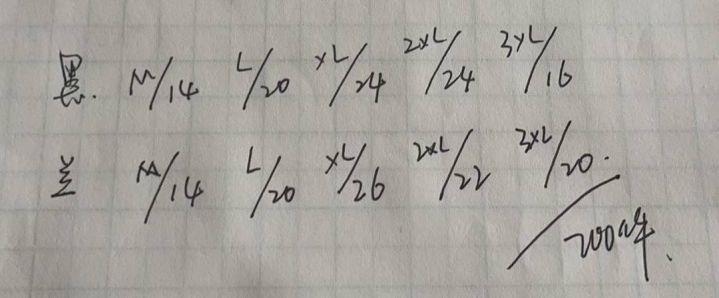 黑. M/14 L/20 XL/24 2XL/24 3XL/16
兰 M/14 L/20 XL/26 2XL/22 3XL/20.
200件.